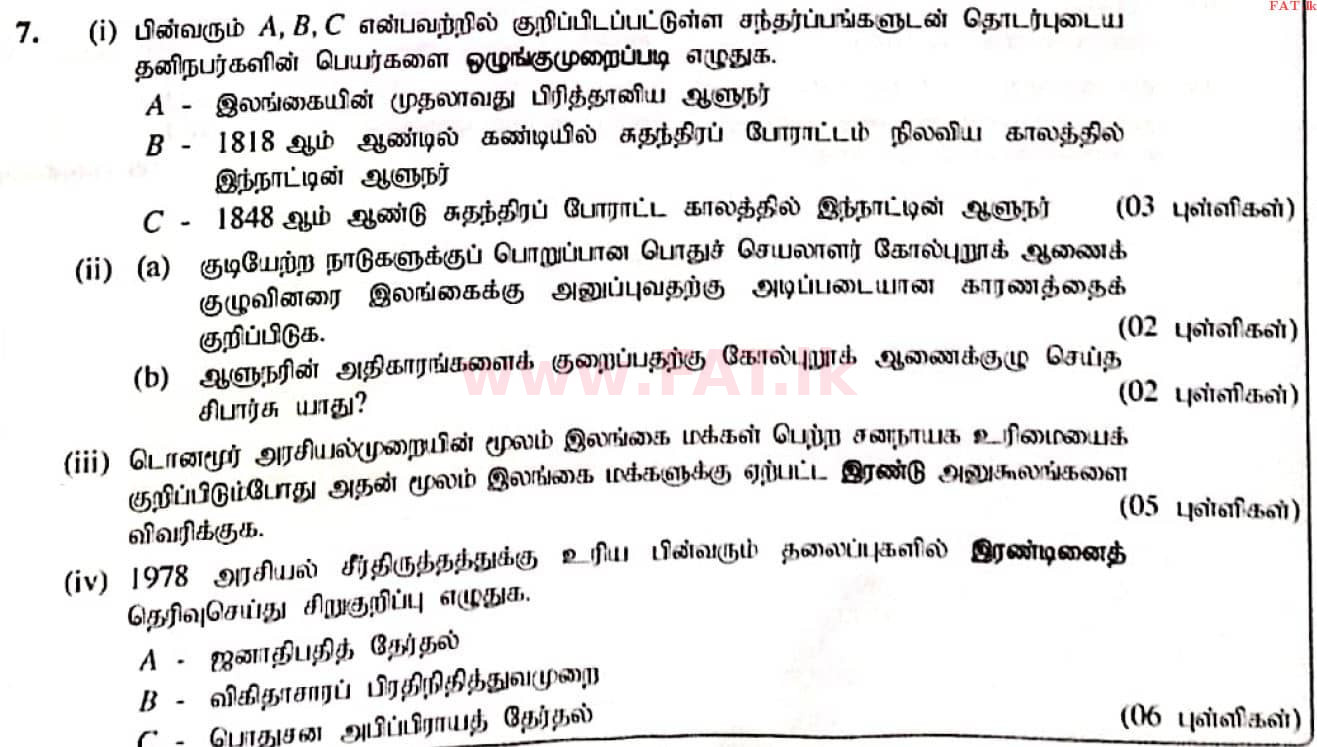 FAT.lk
7. (i) பின்வரும் A, B, C என்பவற்றில் குறிப்பிடப்பட்டுள்ள சந்தர்ப்பங்களுடன் தொடர்புடைய
தனிநபர்களின் பெயர்களை ஒழுங்குமுறைப்படி எழுதுக.
A - இலங்கையின் முதலாவது பிரித்தானிய ஆளுநர்
B - 1818 ஆம் ஆண்டில் கண்டியில் சுதந்திரப் போராட்டம் நிலவிய காலத்தில்
இந்நாட்டின் ஆளுநர்
C - 1848 ஆம் ஆண்டு சுதந்திரப் போராட்ட காலத்தில் இந்நாட்டின் ஆளுநர் (03 புள்ளிகள்)
(ii) (a) குடியேற்ற நாடுகளுக்குப் பொறுப்பான பொதுச் செயலாளர் கோல்புறூக் ஆணைக்
குழுவினரை இலங்கைக்கு அனுப்புவதற்கு அடிப்படையான காரணத்தைக்
குறிப்பிடுக. (02 புள்ளிகள்)
(b) ஆளுநரின் அதிகாரங்களைக் குறைப்பதற்கு கோல்புறூக் ஆணைக்குழு செய்த
சிபார்சு யாது? (02 புள்ளிகள்)
www.FAT.lk
(iii) டொனமூர் அரசியல்முறையின் மூலம் இலங்கை மக்கள் பெற்ற சனநாயக உரிமையைக்
குறிப்பிடும்போது அதன் மூலம் இலங்கை மக்களுக்கு ஏற்பட்ட இரண்டு அனுகூலங்களை
விவரிக்குக. (05 புள்ளிகள்)
(iv) 1978 அரசியல் சீர்திருத்தத்துக்கு உரிய பின்வரும் தலைப்புகளில் இரண்டினைத்
தெரிவுசெய்து சிறுகுறிப்பு எழுதுக.
A - ஜனாதிபதித் தேர்தல்
B - விகிதாசாரப் பிரதிநிதித்துவமுறை
C - பொதுசன அபிப்பிராயத் தேர்தல் (06 புள்ளிகள்)